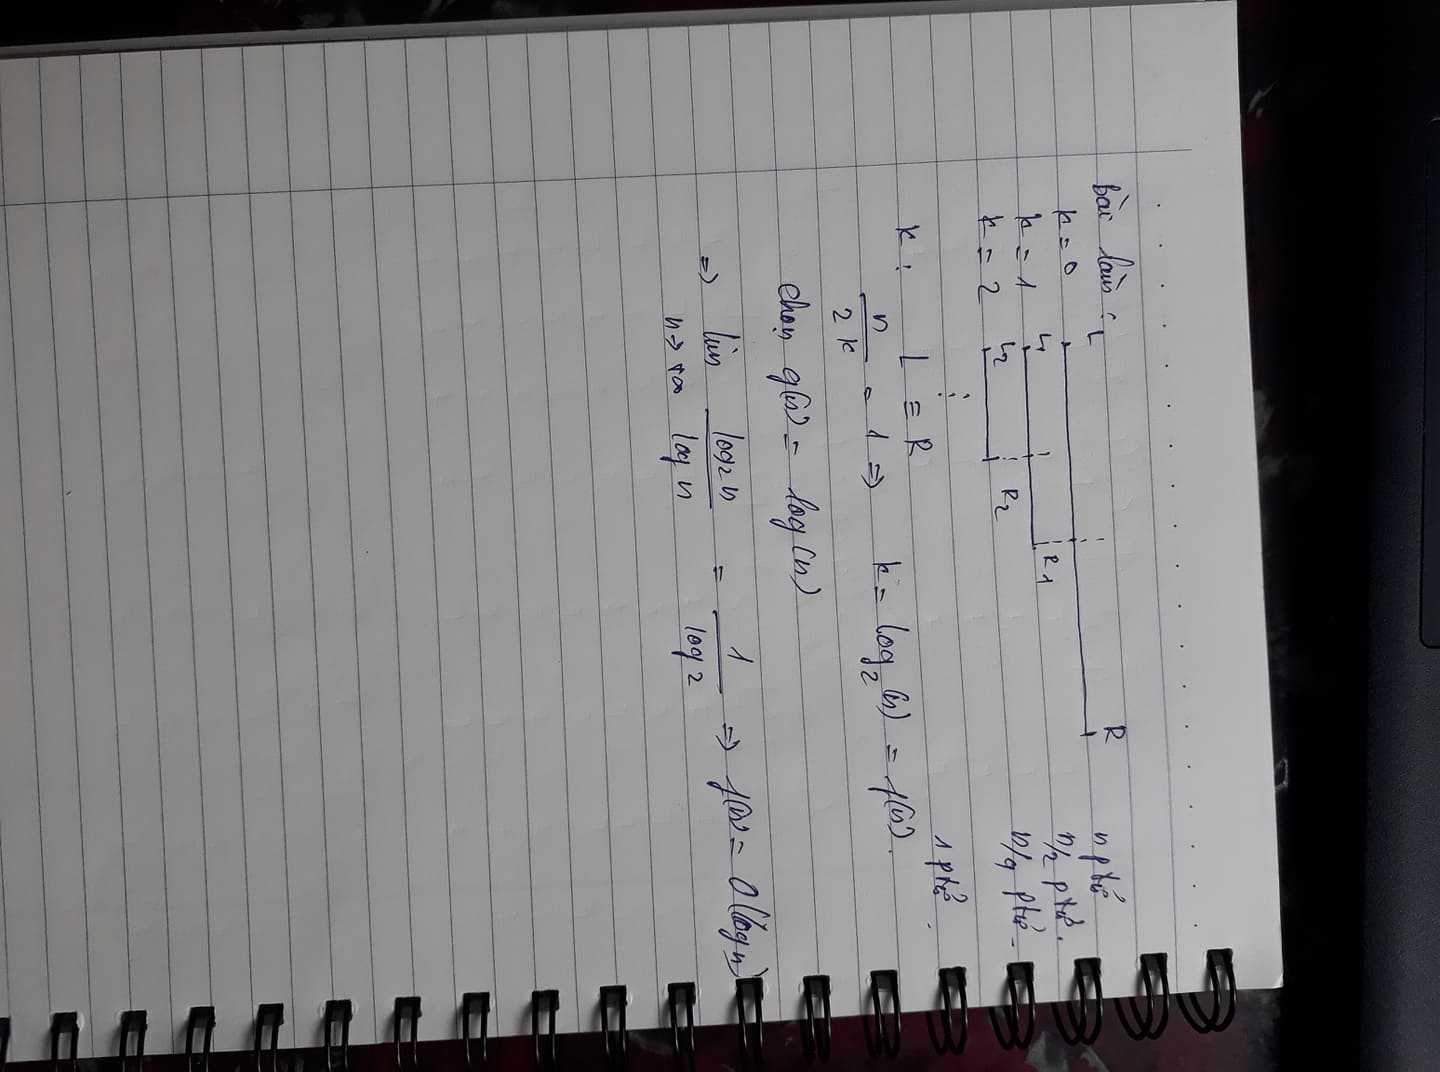 bài làm:
L R n ptử
k=0
k=1 L1 R1 n/2 ptử.
k=2 L2 R2 n/4 ptử.
⋮
k: L ≡ R 1 ptử.
n/2^k = 1 => k = log₂(n) = f(n).
chọn g(n) = log(n)
=> lim n→+∞ log₂n / log n = 1 / log 2 => f(n) = O(log n)